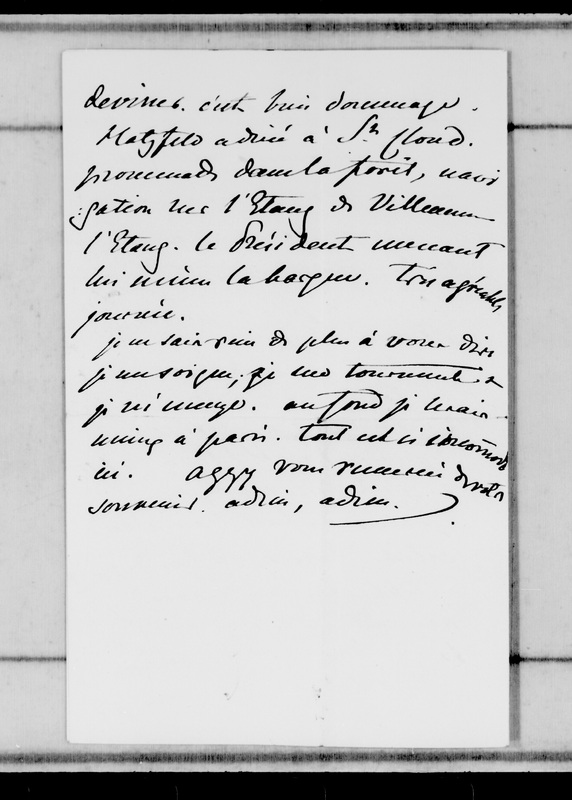 devines. c'est bien dommage.
Hatzfeld a diné à St Cloud.
promenade dans la forêt, navi
gation sur l'Etang de Villeneuve
l'Etang. le Président menant
lui même la barque. très agréable
journée.
je ne sais rien de plus à vous dire
je me soigne, je me tourmente &
je m'ennuye. au fond je serais
mieux à paris. tout est si incommode
ici. aggy vous remercie de votre
souvenir. adieu, adieu.